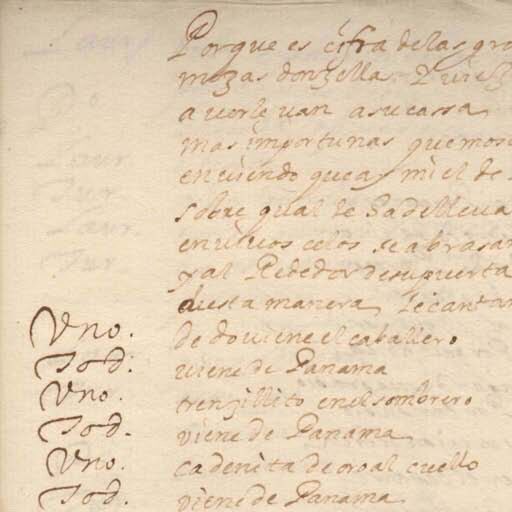 Porque es cifra delas gra
mozas donzella. Y vie
a verle van asu cassa
mas importunas que mosc
en viendo que ay miel de
sobre qual le Sa delleua
en viuos celos se abrasan
y al Rededor desupuerta
desta manera le cantan
Vno. de do viene el caballero
Tod. viene de Panama
Vno. trenzillito enel sombrero
Tod. viene de Panama
Vno. cadenita de oro al cuello
Tod. viene de Panama